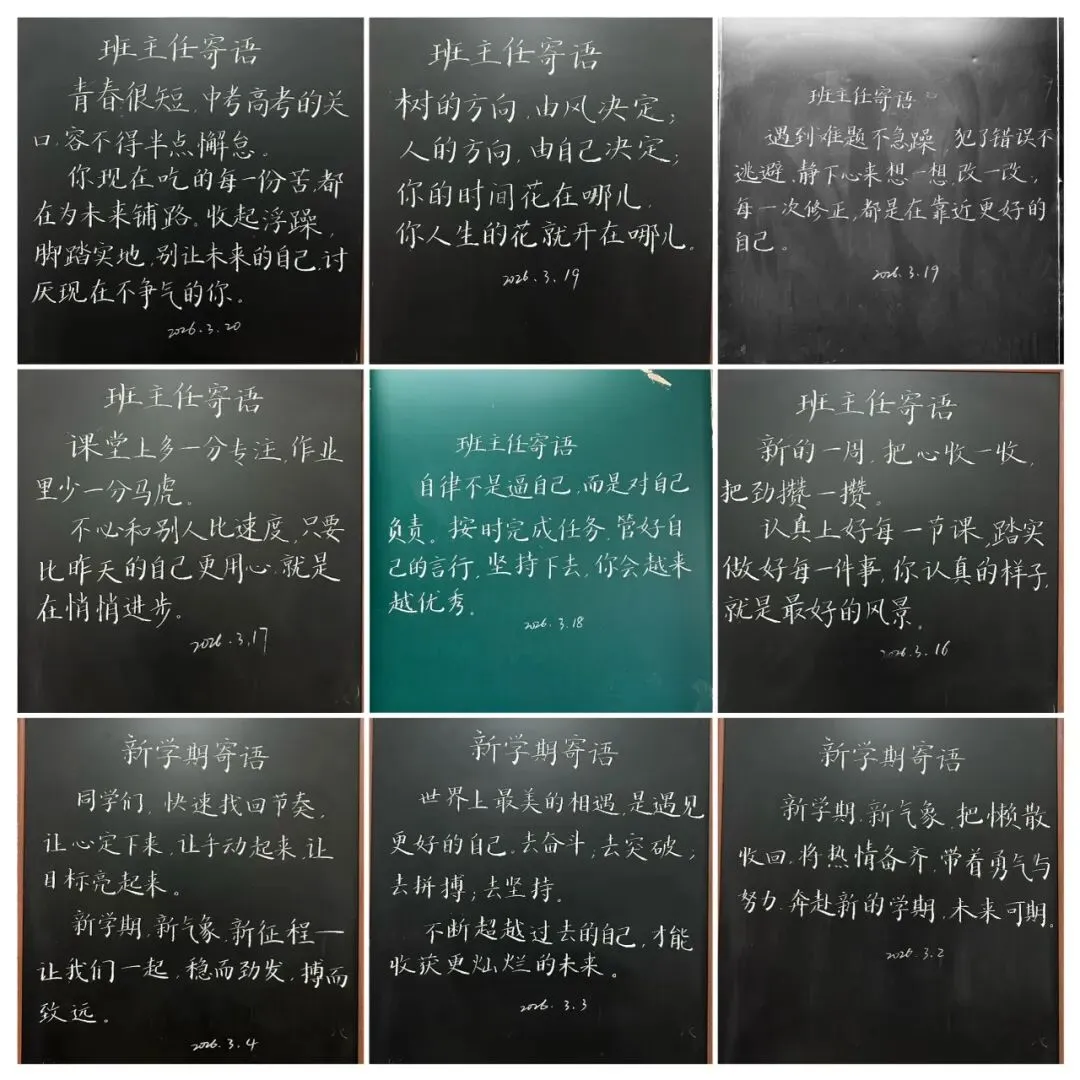 班主任寄语
青春很短,中考高考的关
口,容不得半点懈怠。
你现在吃的每一份苦,都
在为未来铺路。收起浮躁,
脚踏实地,别让未来的自己,讨
厌现在不争气的你。
2026.3.20
班主任寄语
树的方向,由风决定;
人的方向,由自己决定;
你的时间花在哪儿,
你人生的花就开在哪儿。
2026.3.19
班主任寄语
遇到难题不急躁,犯了错误不
逃避、静下心来想一想,改一改,
每一次修正,都是在靠近更好的
自己。
2026.3.19
班主任寄语
课堂上多一分专注,作业
里少一分马虎。
不心和别人比速度,只要
比昨天的自己更用心,就是
在悄悄进步。
2026.3.17
班主任寄语
自律不是逼自己,而是对自己
负责。按时完成任务,管好自
己的言行,坚持下去,你会越来
越优秀。
2026.3.18
班主任寄语
新的一周,把心收一收,
把劲攒一攒。
认真上好每一节课,踏实
做好每一件事,你认真的样子,
就是最好的风景。
2026.3.16
新学期寄语
同学们,快速找回节奏,
让心定下来,让手动起来,让
目标亮起来。
新学期,新气象,新征程—
让我们一起,稳而劲发,搏而
致远。
2026.3.4
新学期寄语
世界上最美的相遇,是遇见
更好的自己。去奋斗;去突破;
去拼搏;去坚持。
不断超越过去的自己,才能
收获更灿烂的未来。
2026.3.3
新学期寄语
新学期,新气象,把懒散
收回,将热情备齐,带着勇气与
努力,奔赴新的学期,未来可期。
2026.3.2